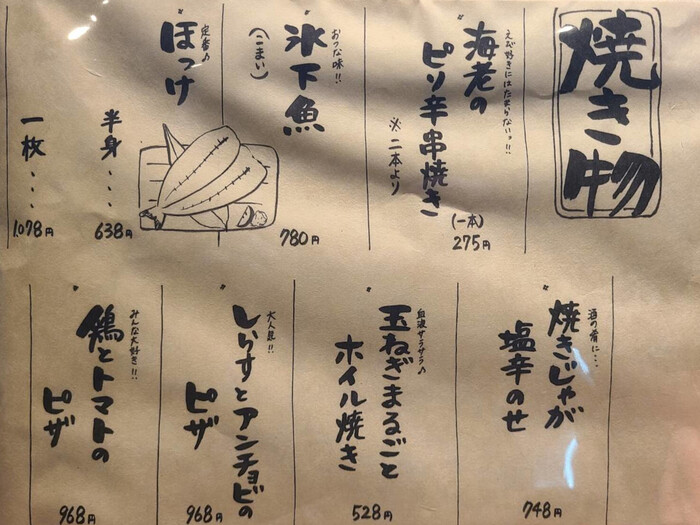 焼き物
えび好きにはたまらないっ!!
海老の
ピリ辛串焼き
※二本より
(一本)
275円
おつな味!!
氷下魚
(こまい)
780円
定番♪
ほっけ
半身・・・
638円
一枚・・・
1,078円
酒の肴に…
焼きじゃが
塩辛のせ
748円
血液サラサラ♪
玉ねぎまるごと
ホイル焼き
528円
大人気!!
しらすとアンチョビの
ピザ
968円
みんな大好き!!
鶏とトマトの
ピザ
968円